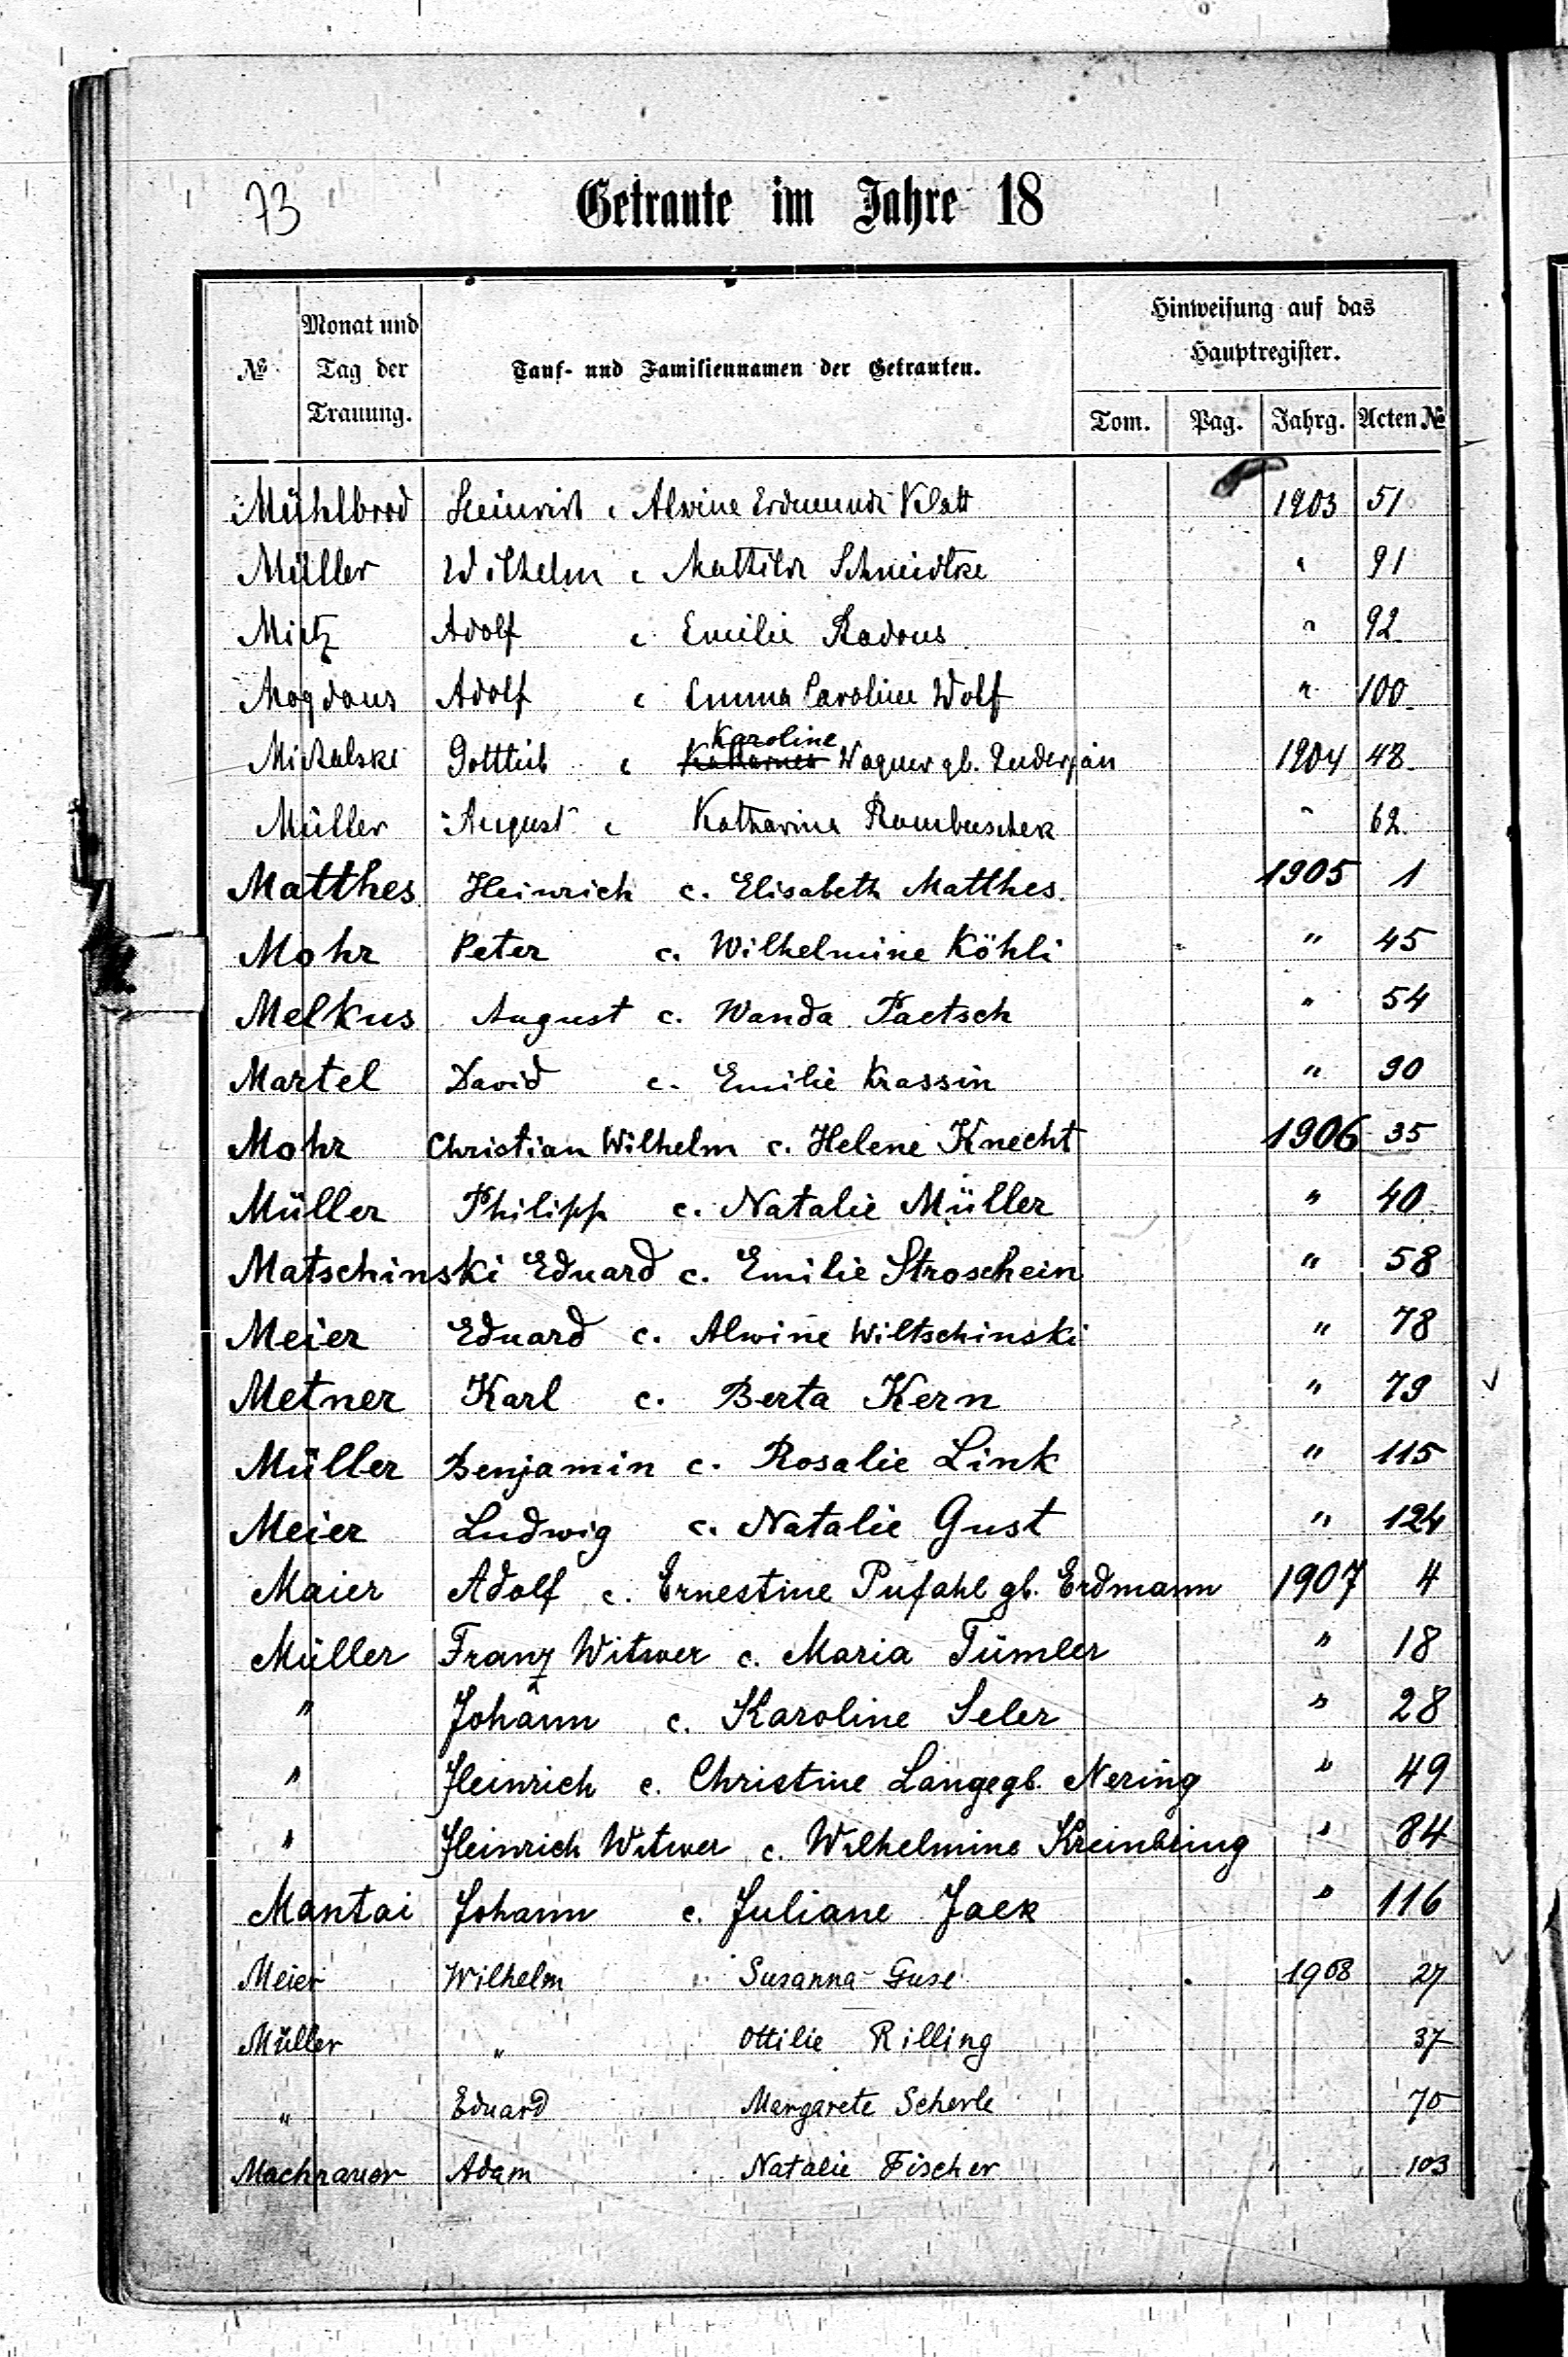 73
Getraute im Jahre 18
№ Monat und Tag der Trauung. Tauf- und Familiennamen der Getrauten. Hinweisung auf das Hauptregister.
Tom. Pag. Jahrg. Acten №
Mühlbrod Heinrich c Alwine Erdmunde Klatt 1903 51
Müller Wilhelm c Mathilde Schmidtke " 91
Mietz Adolf c Emilie Radons " 92
Mogdans Adolf c Emma Caroline Wolf " 100
Michalski Gottlieb c Karoline Wagner gb. 1904 48
Müller August c Katharina " 62
Matthes Heinrich c. Elisabeth Matthes. 1905 1
Mohr Peter c. Wilhelmine Köhli " 45
Melkus August c. Wanda Paetsch " 54
Martel David c. Emilie Krassin " 90
Mohr Christian Wilhelm c. Helene Knecht 1906 35
Müller Philipp c. Natalie Müller " 40
Matschinski Eduard c. Emilie Stroschein " 58
Meier Eduard c. Alwine Wiltschinski " 78
Metner Karl c. Berta Kern " 79
Müller Benjamin c. Rosalie Link " 115
Meier Ludwig c. Natalie Gust " 124
Maier Adolf c. Ernestine Pufahl gb. Erdmann 1907 4
Müller Franz Witwer c. Maria Tümler " 18
" Johann c. Karoline Seler " 28
" Heinrich c. Christine Lange gb. Nering " 49
" Heinrich Witwer c. Wilhelmine Kreinbring " 84
Mantai Johann c. Juliane Jaek " 116
Meier Wilhelm " Susanna Guse 1908 27
Müller " Ottilie Rilling 37
" Eduard Margarete Scherle 70
Machrauer Adam Natalie Fischer 103